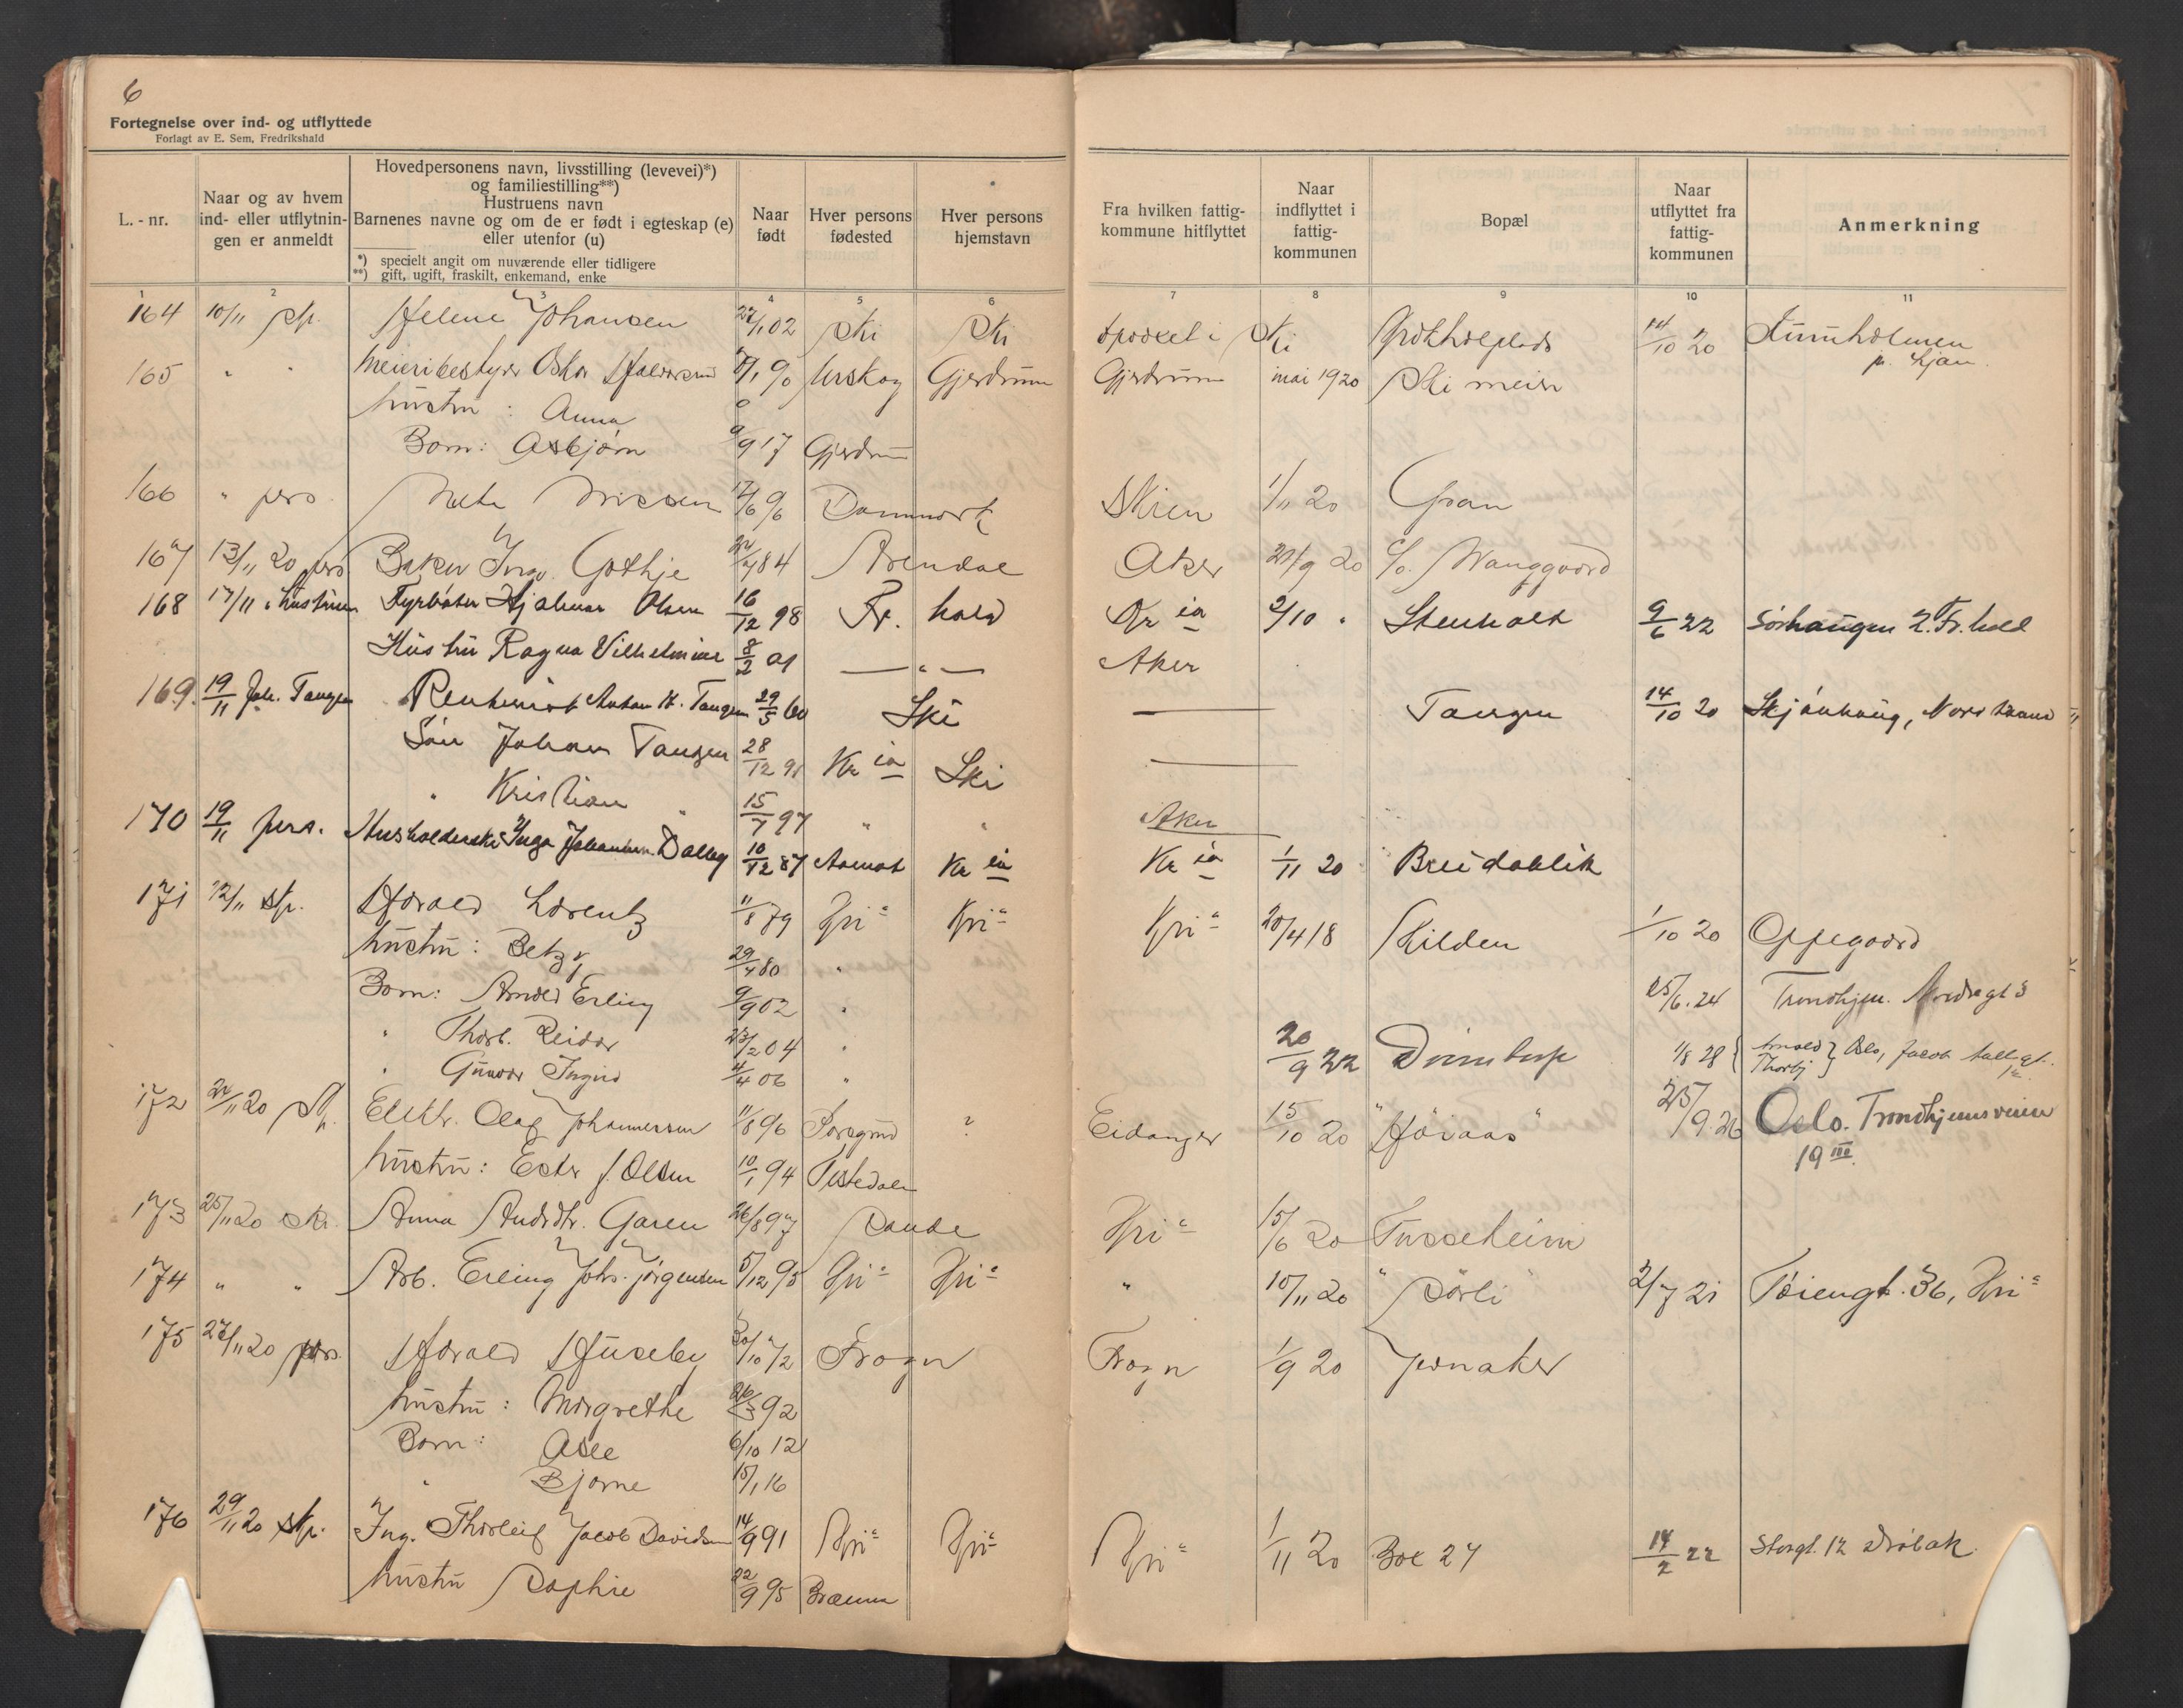 6
Fortegnelse over ind- og utflyttede
Forlagt av E. Sem, Fredrikshald
L. - nr.
Naar og av hvem ind- eller utflytnin- gen er anmeldt
Hovedpersonens navn, livsstilling (levevei)*) og familiestilling**)
Hustruens navn
Barnenes navne og om de er født i egteskap (e) eller utenfor (u)
*) specielt angit om nuværende eller tidligere
**) gift, ugift, fraskilt, enkemand, enke
Naar født
Hver persons fødested
Hver persons hjemstavn
Fra hvilken fattig- kommune hitflyttet
Naar indflyttet i fattig- kommunen
Bopæl
Naar utflyttet fra fattig- kommunen
Anmerkning
1 2 3 4 5 6 7 8 9 10 11
164 10/11 Helene Johansen 1 02 Ski Ski Ski 14/10 20
p. Ljan
165 " " Meieribestyrer Oskar 1 90 Urskog Gjerdrum Gjerdrum mai 1920 Ski meieri
hustru : Anna
Barn: Asbjørn 9/9 17 Gjerdrum
166 " pers. Nissen /6 96 Danmark Skien 1/11 20 Gran
167 13/11 20 pers Baker Ingv. Gothje 84 Arendal Aker 21/9 20 c/o. Wanggaard
168 17/11 " hustruen Fyrbøter Hjalmar Olsen 16/12 98 Fr. hald Kr ia 2/10 " Stenholt 9/6 22 Sørhaugen 2. Fr. hald
Hustru Ragna Vilhelmine 8/2 01 — " — Aker
169. 19/11 Joh. Tangen Rentenist Anton H. Tangen 29/5 60 Ski — Tangen 14/10 20 Skjønhaug, Nordstrand
Søn Johan Tangen 28/12 91 Kr ia Ski —
" Kristian " 15/7 97 " " Aker
170 19/11 pers. Husholderske Inga Johannesen Dalby 10/12 87 Aamot Kr ia Kr ia 1/11 20 Breidablik
171 22/11 sp. Harald Lorentz 11/8 79 Kri a Kri a Kri a 20/4 18 Kilden 1/10 20 Oppegaard
hustru: Betzy 29/4 80 "
Barn: Arnold Erling 9/9 02 " 25/6.24 Trondhjem.
" Thorb. Reidar 23/2 04 " 20/9 22 1/8 28 { Arnold Thorbj } Oslo, Jacob Hallsgt.
" Gunvor Ingrid 4/4 06 "
172 22/11 20 Sp. Elektr. Olaf Johannessen 11/8 96 Porsgrund ? Eidanger 15/10 20 "Høiaas" 25/9.26 Oslo. Trondhjemsveien
19 III.
hustru: Ester f. Olsen 10/1 94 Tistedalen
173 25/11 20 skr. Anna Andrdtr. Garen 26/8 97 Sande Kri a 15/6 20 Tusseheim
174 " " Arb. Erling Johs. Jørgensen 5/12 95 Kri a Kri a " 10/11 20 "Sørli" 2/7 21 Tøiengt. 36, Kri a
175 27/11 20 pers. Harald Huseby 30/10 72 Frogn Frogn 1/9 20 Jernaker
hustru: Margrethe 26/3 92
Barn: Aase 6/10 12
" Bjarne 15/1 16
176 29/11 20 sp. Ing. Thorleif Jacob Davidsen 14/9 91 Kri a Kri a Kri a 1/11 20 Box 27 14/2 22 Storgt. 12 Drøbak.
hustru Sophie 22/9 95